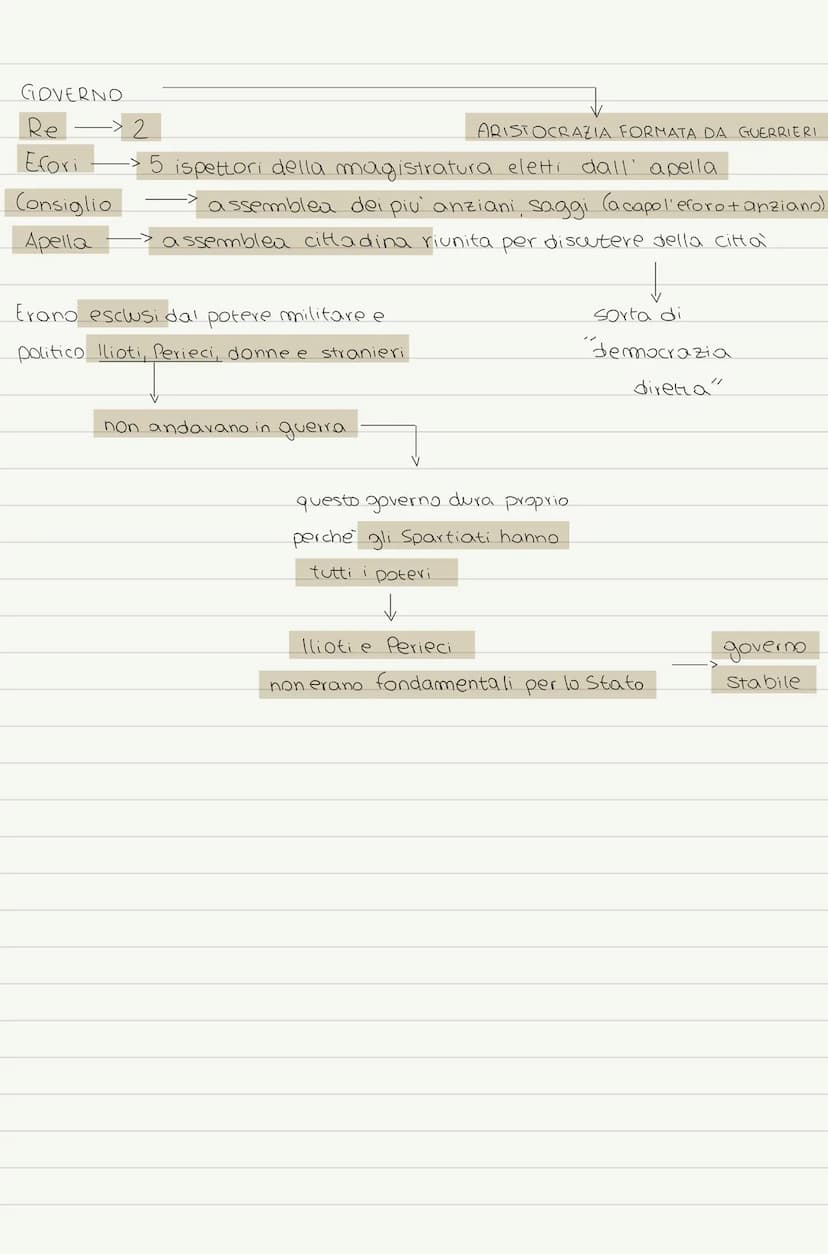 GOVERNO
Re → 2
ARISTOCRAZIA FORMATA DA GUERRIERI
Efori → 5 ispettori della magistratura eletti dall' apella
Consiglio → assemblea dei piu' anziani, saggi (a capo l'eforo + anziano)
Apella → assemblea cittadina riunita per discutere della città
sorta di
"democrazia
diretta"
Erano esclusi dal potere militare e
politico Ilioti, Perieci, donne e stranieri
non andavano in guerra
questo governo dura proprio
perche' gli Spartiati hanno
tutti i poteri
Ilioti e Perieci
non erano fondamentali per lo Stato →
governo
stabile